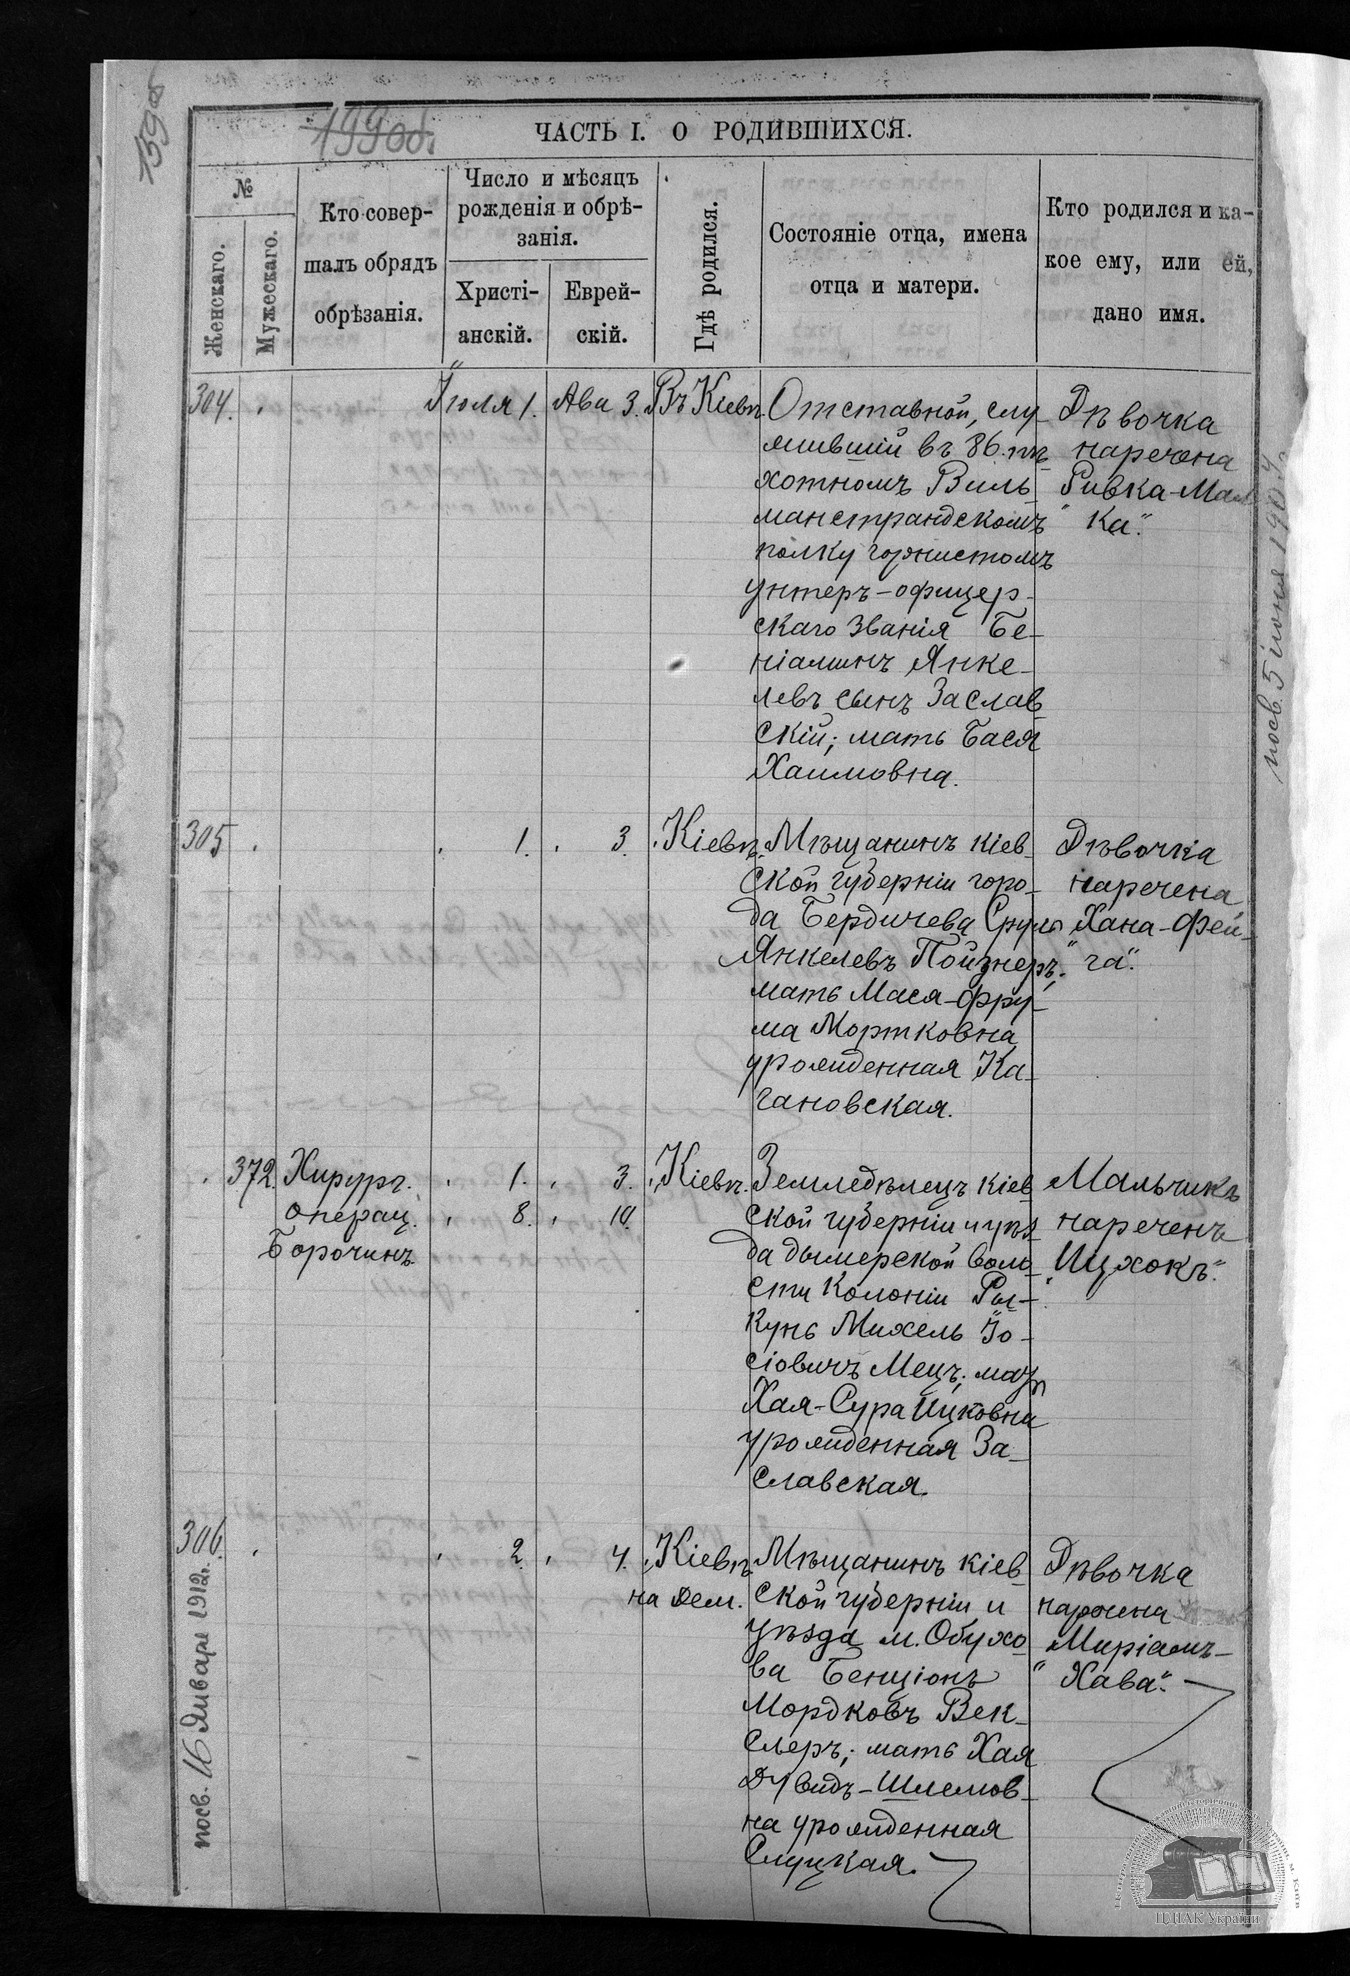 199об.
ЧАСТЬ I. О РОДИВШИХСЯ.
№
Женскаго.
Мужескаго.
Кто совер-
шалъ обрядъ
обрѣзанія.
Число и мѣсяцъ
рожденія и обрѣ-
занія.
Христі-
анскій.
Еврей-
скій.
Гдѣ родился.
Состояніе отца, имена
отца и матери.
Кто родился и ка-
кое ему, или ей,
дано имя.
304. Іюля 1. Ава 3. Въ Кіевѣ.
Отставной, слу-
жившій въ 86. пѣ-
хотномъ Виль-
манстрандскомъ
полку горнистомъ
унтеръ-офицер-
скаго званія Бе-
ніаминъ Янке-
левъ сынъ Заслав-
скій; мать Бася
Хаимовна.
Дѣвочка
наречена
Ривка-Мал
"ка".
305 1. 3. Кіевѣ.
Мѣщанинъ кіев-
ской губерніи горо-
да Бердичева Сруль
Янкелевъ Пойзнеръ;
мать Мася-Фру-
ма Мортковна
урожденная Ка-
гановская.
Дѣвочка
наречена
Хана-Фей-
"га".
372. Хирургъ.
операц.
Борочинъ
1. 3. Кіевѣ.
8. 10.
Земледѣлецъ кіев
ской губерніи и уѣз-
да дымерской воло-
сти колоніи Ры-
кунь Михель Іо-
сіовичъ Мецъ; мать
Хая-Сура Ицковна
урожденная За-
славская.
Мальчикъ
нареченъ
"Ицхокъ".
306. 2. 4. Кіевѣ
на Дем.
Мѣщанинъ кіев-
ской губерніи и
уѣзда м. Обухо-
ва Бенціонъ
Мордковъ Век-
слеръ; мать Хая
Дувидъ-Шлемов-
на урожденная
Слуцкая.
Дѣвочка
наречена
Миріамъ-
"Хава".
посв. 5 іюня 1904 г.
посв. 16 Января 1912г.
ЦДІАК України